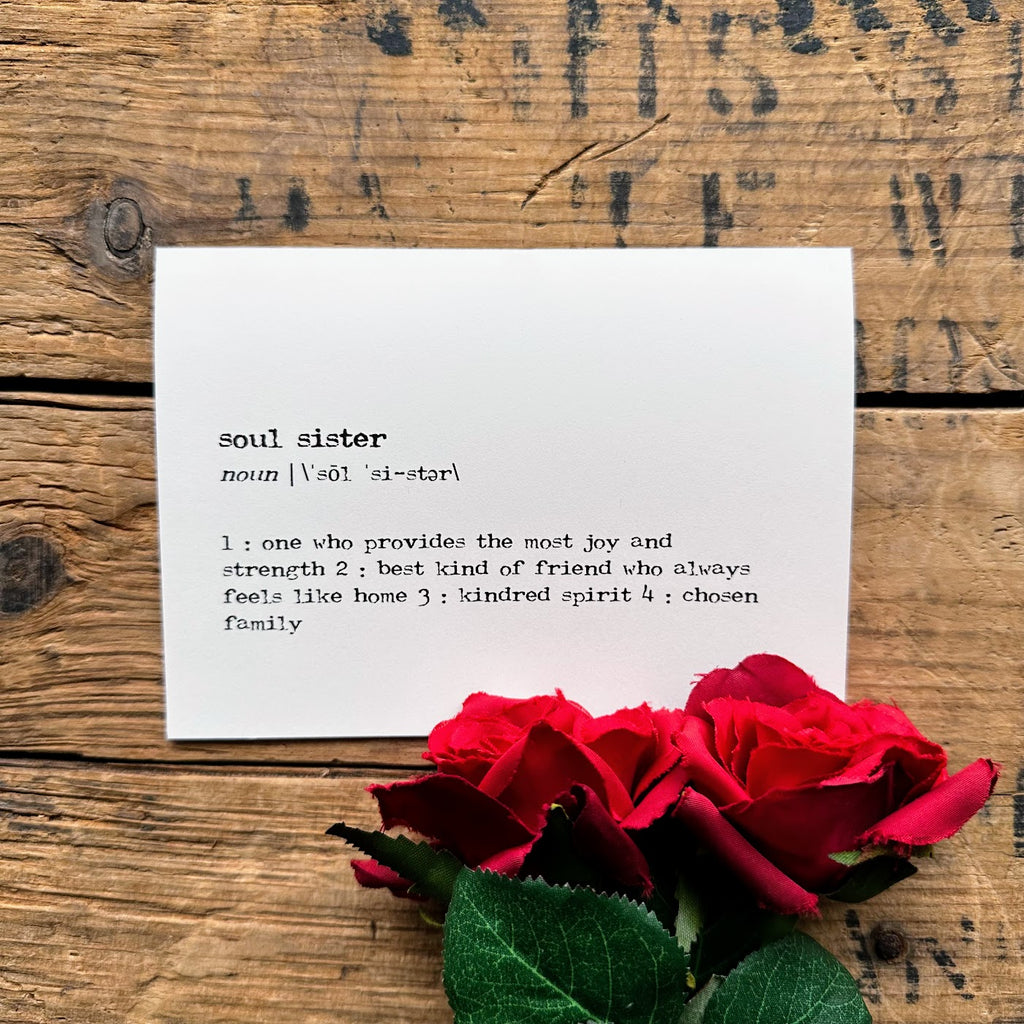 soul sister
noun | \ˈsōl ˈsi-stər\
1 : one who provides the most joy and
strength 2 : best kind of friend who always
feels like home 3 : kindred spirit 4 : chosen
family